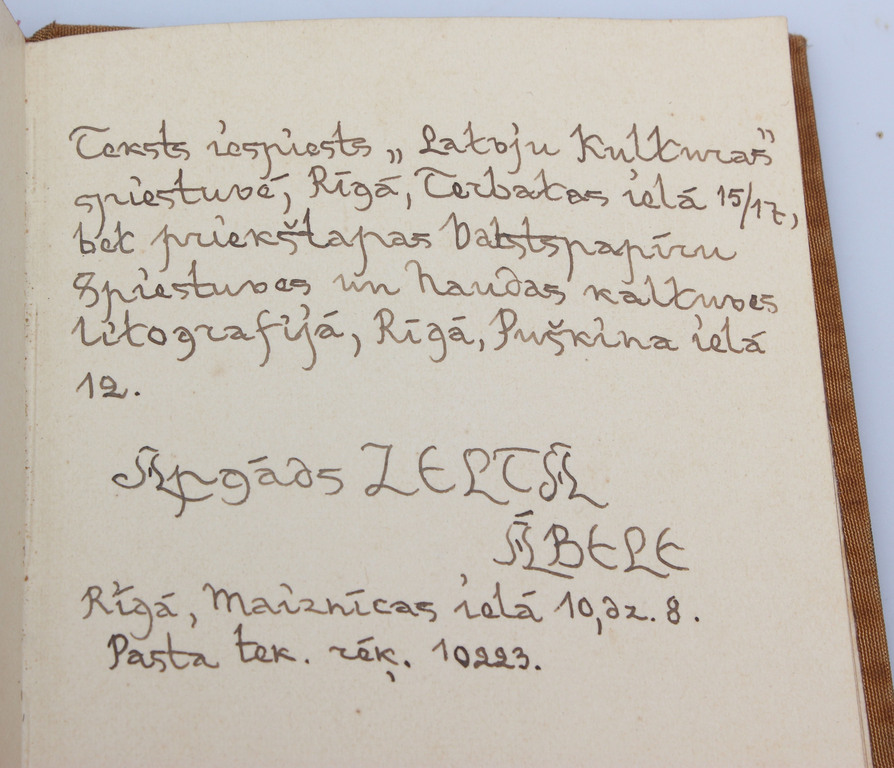 Teksts iespiests „Latvju Kulturas”
spiestuvē, Rīgā, Tērbatas ielā 15/17,
bet priekšlapas Valstspapīru
Spiestuves un Naudas kaltuves
litografijā, Rīgā, Puškina ielā
12.
Apgāds ZELTA
ĀBELE
Rīgā, Maiznīcas ielā 10, dz. 8.
Pasta tek. rēķ. 10223.